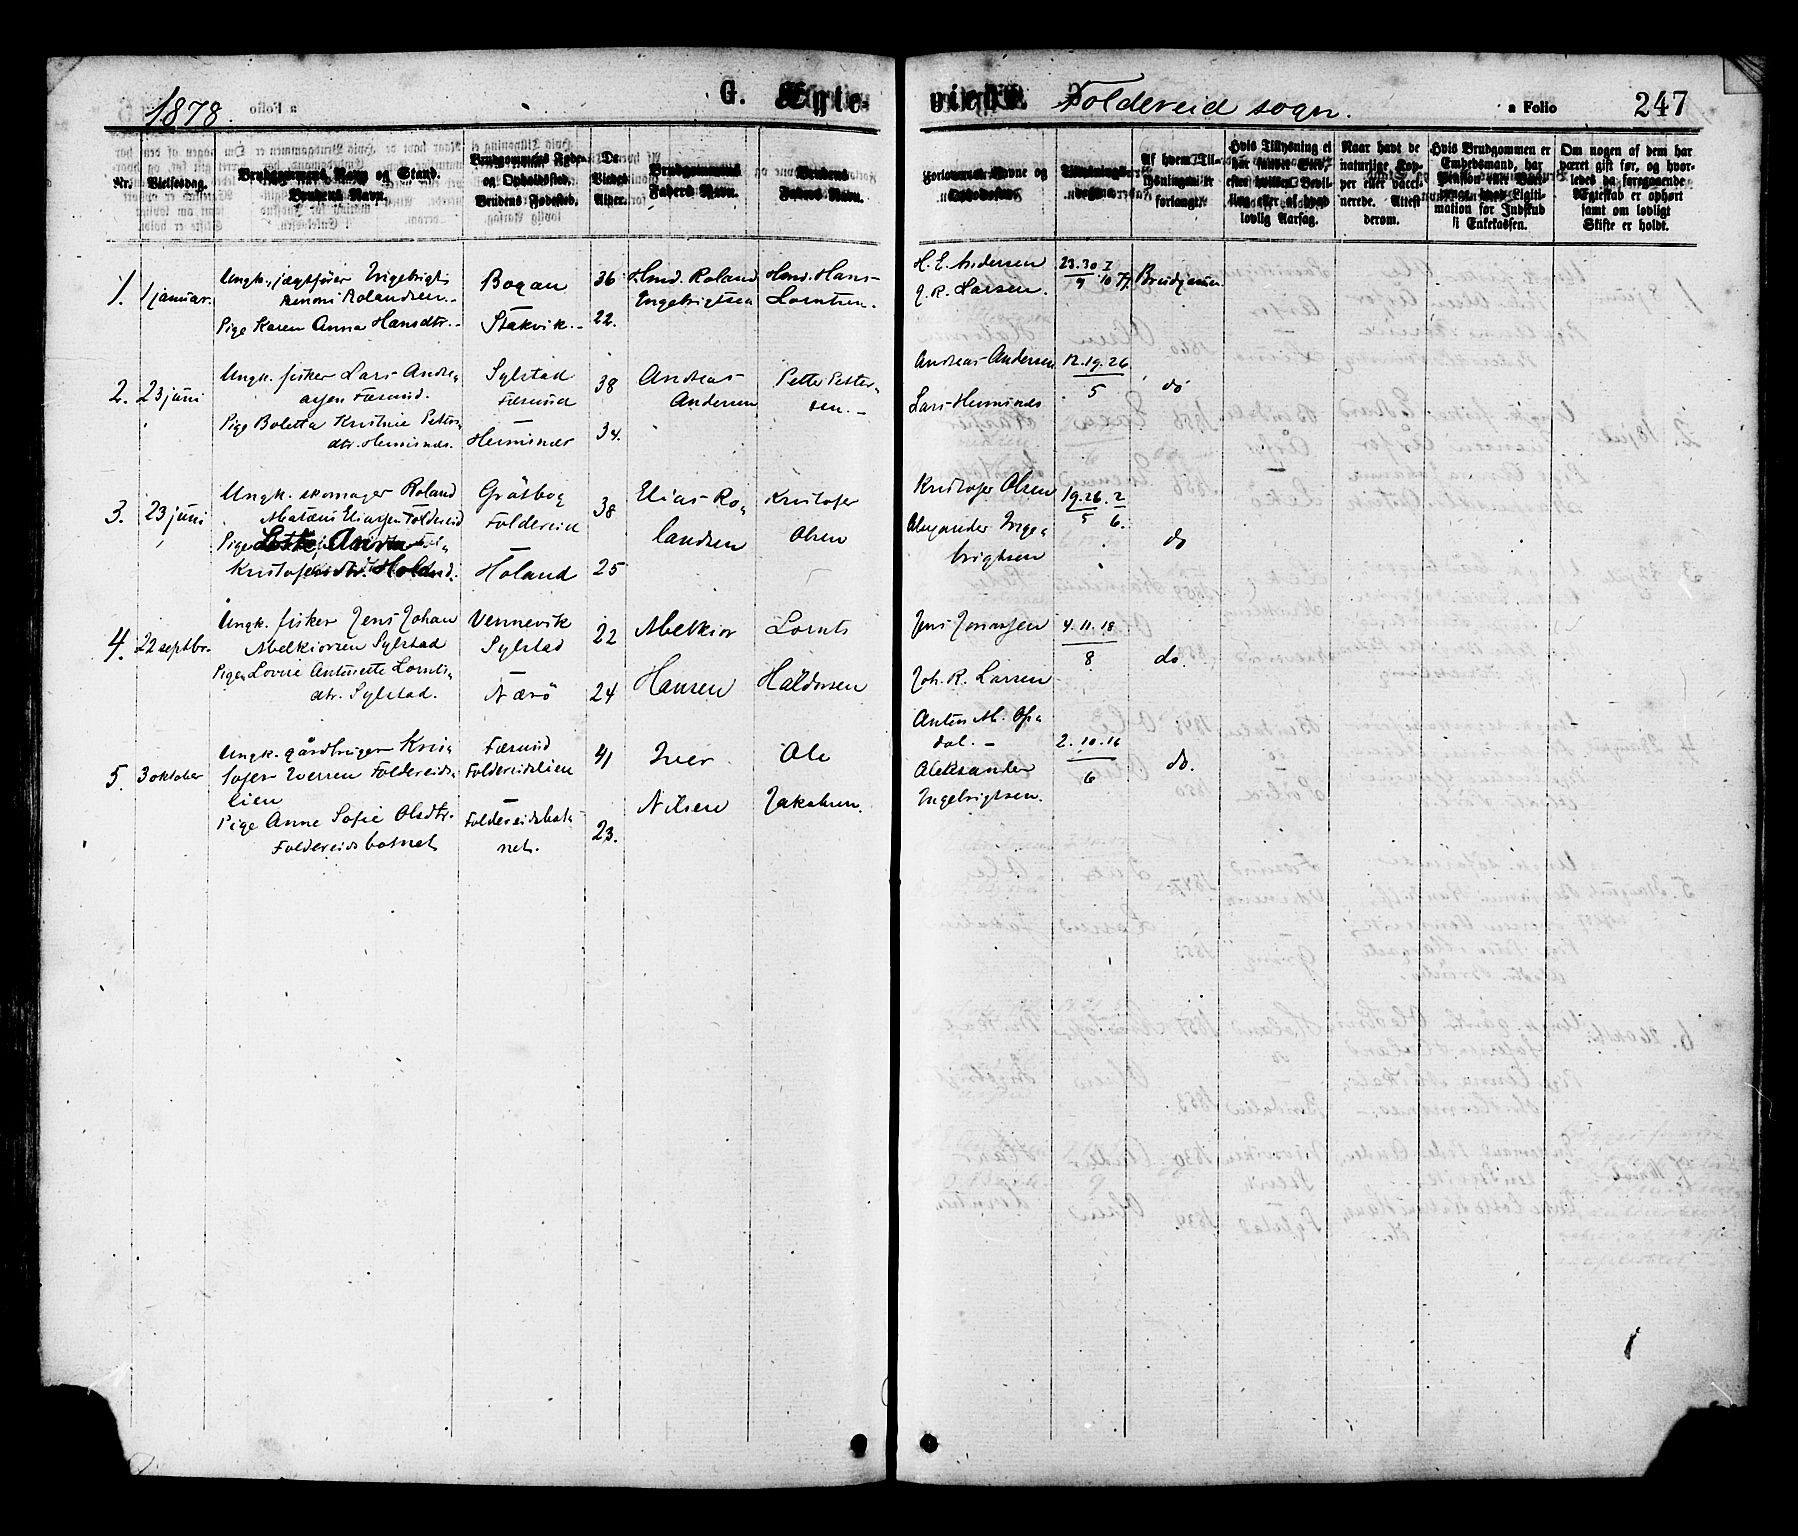 1878.
G. Ægte-
viede. Foldereid sogn.
a Folio 247
Nr.
Vielsesdag.
Brudgommens Navn og Stand.
Brudens Navn.
Brudgommens Føde-
og Opholdssted.
Brudens Fødested.
De
Viedes
Alder.
Brudgommens
Faders Navn.
Brudens
Faders Navn.
Forlovernes Navne og
Opholdssted.
Tillysnings-
dagene.
Af hvem Til-
lysningen er
forlangt.
Hvis Tillysning ei
har fundet Sted,
efter hvilken Bevil-
ling eller af hvad
lovlig Aarsag.
Naar havt de
naturlige Kop-
per eller vacci-
nerede. Attest
derom.
Hvis Brudgommen er
Embedsmand, har
Pension eller
mation for Indskud
i Enkekassen.
Om nogen af dem har
været gift før, og hvor-
ledes da foregaaende
Ægteskab er ophørt
samt om lovligt
Skifte er holdt.
1. 1 januar.
Ungk. jægtfører Ingebrigt
Rolandsen
Pige Karen Anna Hansdtr.
Bogan
Stakvik.
36
22.
Hmd. Roland
Ingebrigtsen
Hmd. Hans
Lorntsen.
H. E. Andersen
J. R. Larsen.
23.30. 7
9 10 77.
Brudgommen
2. 23 juni
Ungk. fisker Lars Andre-
asen Færsund.
Pige Boletta Kristine Petters-
dtr. Hermsnes.
Sylstad
Færsund
Hermsnes
38
34.
Andreas
Andersen
Petter Petter-
sen.
Andreas Andersen
Lars Hermsnes
12.19.26
5
do
3. 23 juni
Ungk. skomager Roland
Matæus Eliassen Foldereid
Pige Anna
Kristofersdtr. Holand.
Gråsbog
Foldereid
Høland
38
25
Elias Ro-
landsen
Kristofer
Olsen
Kristofer Olsen
Alexander Inge-
brigtsen
19.26. 2
5 6.
do
4. 22 septbr.
Ungk. fisker Jens Johan
Abelkiorsen Sylstad
Pige Lovise Antonette Lornts-
dtr. Sylstad.
Vennevik
Sylstad
Nærö
22
24
Abelkior
Hansen
Lornts
Haldorsen
Jens Jonassen
Joh. R. Larsen
4.11.18
8
do.
5. 3 oktober
Ungk. gårdbruger Kris-
tofer Iversen Foldereids-
lien
Pige Anne Sofie Olsdtr.
Foldereidsbotnet
Færsund
Foldereidslien
Foldereidsbot-
net.
41
23.
Iver
Nilsen
Ole
Jakobsen.
Anton M. Op-
dal.
Aleksander
Ingebrigtsen.
2.10.16
6
do.